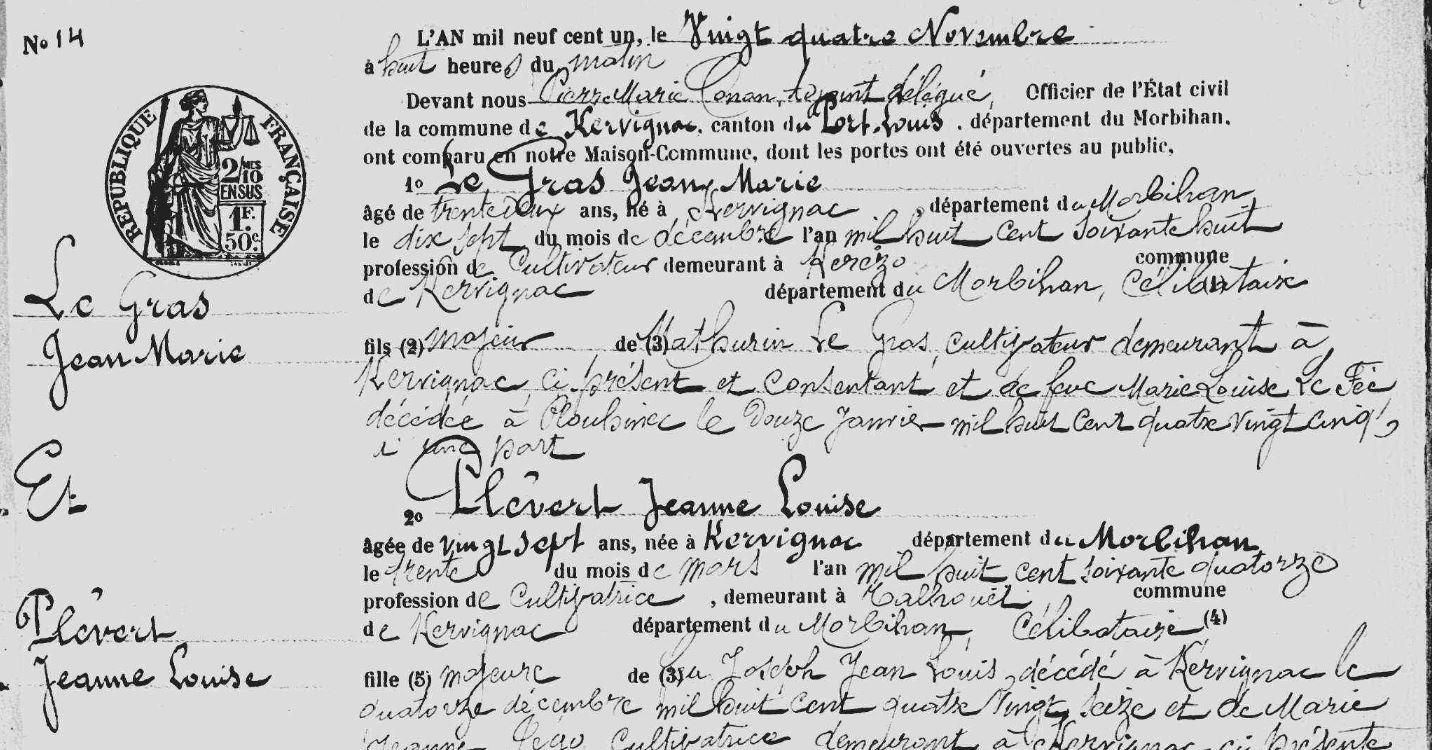 No 14
RÉPUBLIQUE FRANÇAISE
2/10 MES
EN SUS
1 F.
50 c.
Le Gras
Jean Marie
Et
Plévert
Jeanne Louise
L'AN mil neuf cent un, le Vingt quatre Novembre
à huit heures du matin
Devant nous Pierre Marie Conan, adjoint délégué, Officier de l'État civil
de la commune de Kervignac, canton du Port-Louis, département du Morbihan,
ont comparu en notre Maison-Commune, dont les portes ont été ouvertes au public,
1o Le Gras Jean Marie
âgé de trente deux ans, né à Kervignac, département du Morbihan,
le dix sept du mois de décembre l'an mil huit cent soixante huit
profession de Cultivateur demeurant à commune
de Kervignac département du Morbihan, Célibataire
fils (2) majeur de (3) Mathurin Le Gras, cultivateur demeurant à
Kervignac, ci présent et consentant et de feue Marie Louise Le Fée
décédée à Plouhinec le Douze Janvier mil huit cent quatre vingt cinq,
d'une part
2o Plévert Jeanne Louise
âgée de vingt sept ans, née à Kervignac département du Morbihan
le trente du mois de mars l'an mil huit cent soixante quatorze
profession de Cultivatrice, demeurant à Talhouët, commune
de Kervignac département du Morbihan, Célibataire (4)
fille (5) majeure de (3) feu Joseph Jean Louis, décédé à Kervignac le
quatorze décembre mil huit cent quatre vingt seize et de Marie
Jeanne Cultivatrice demeurant à Kervignac ci présente